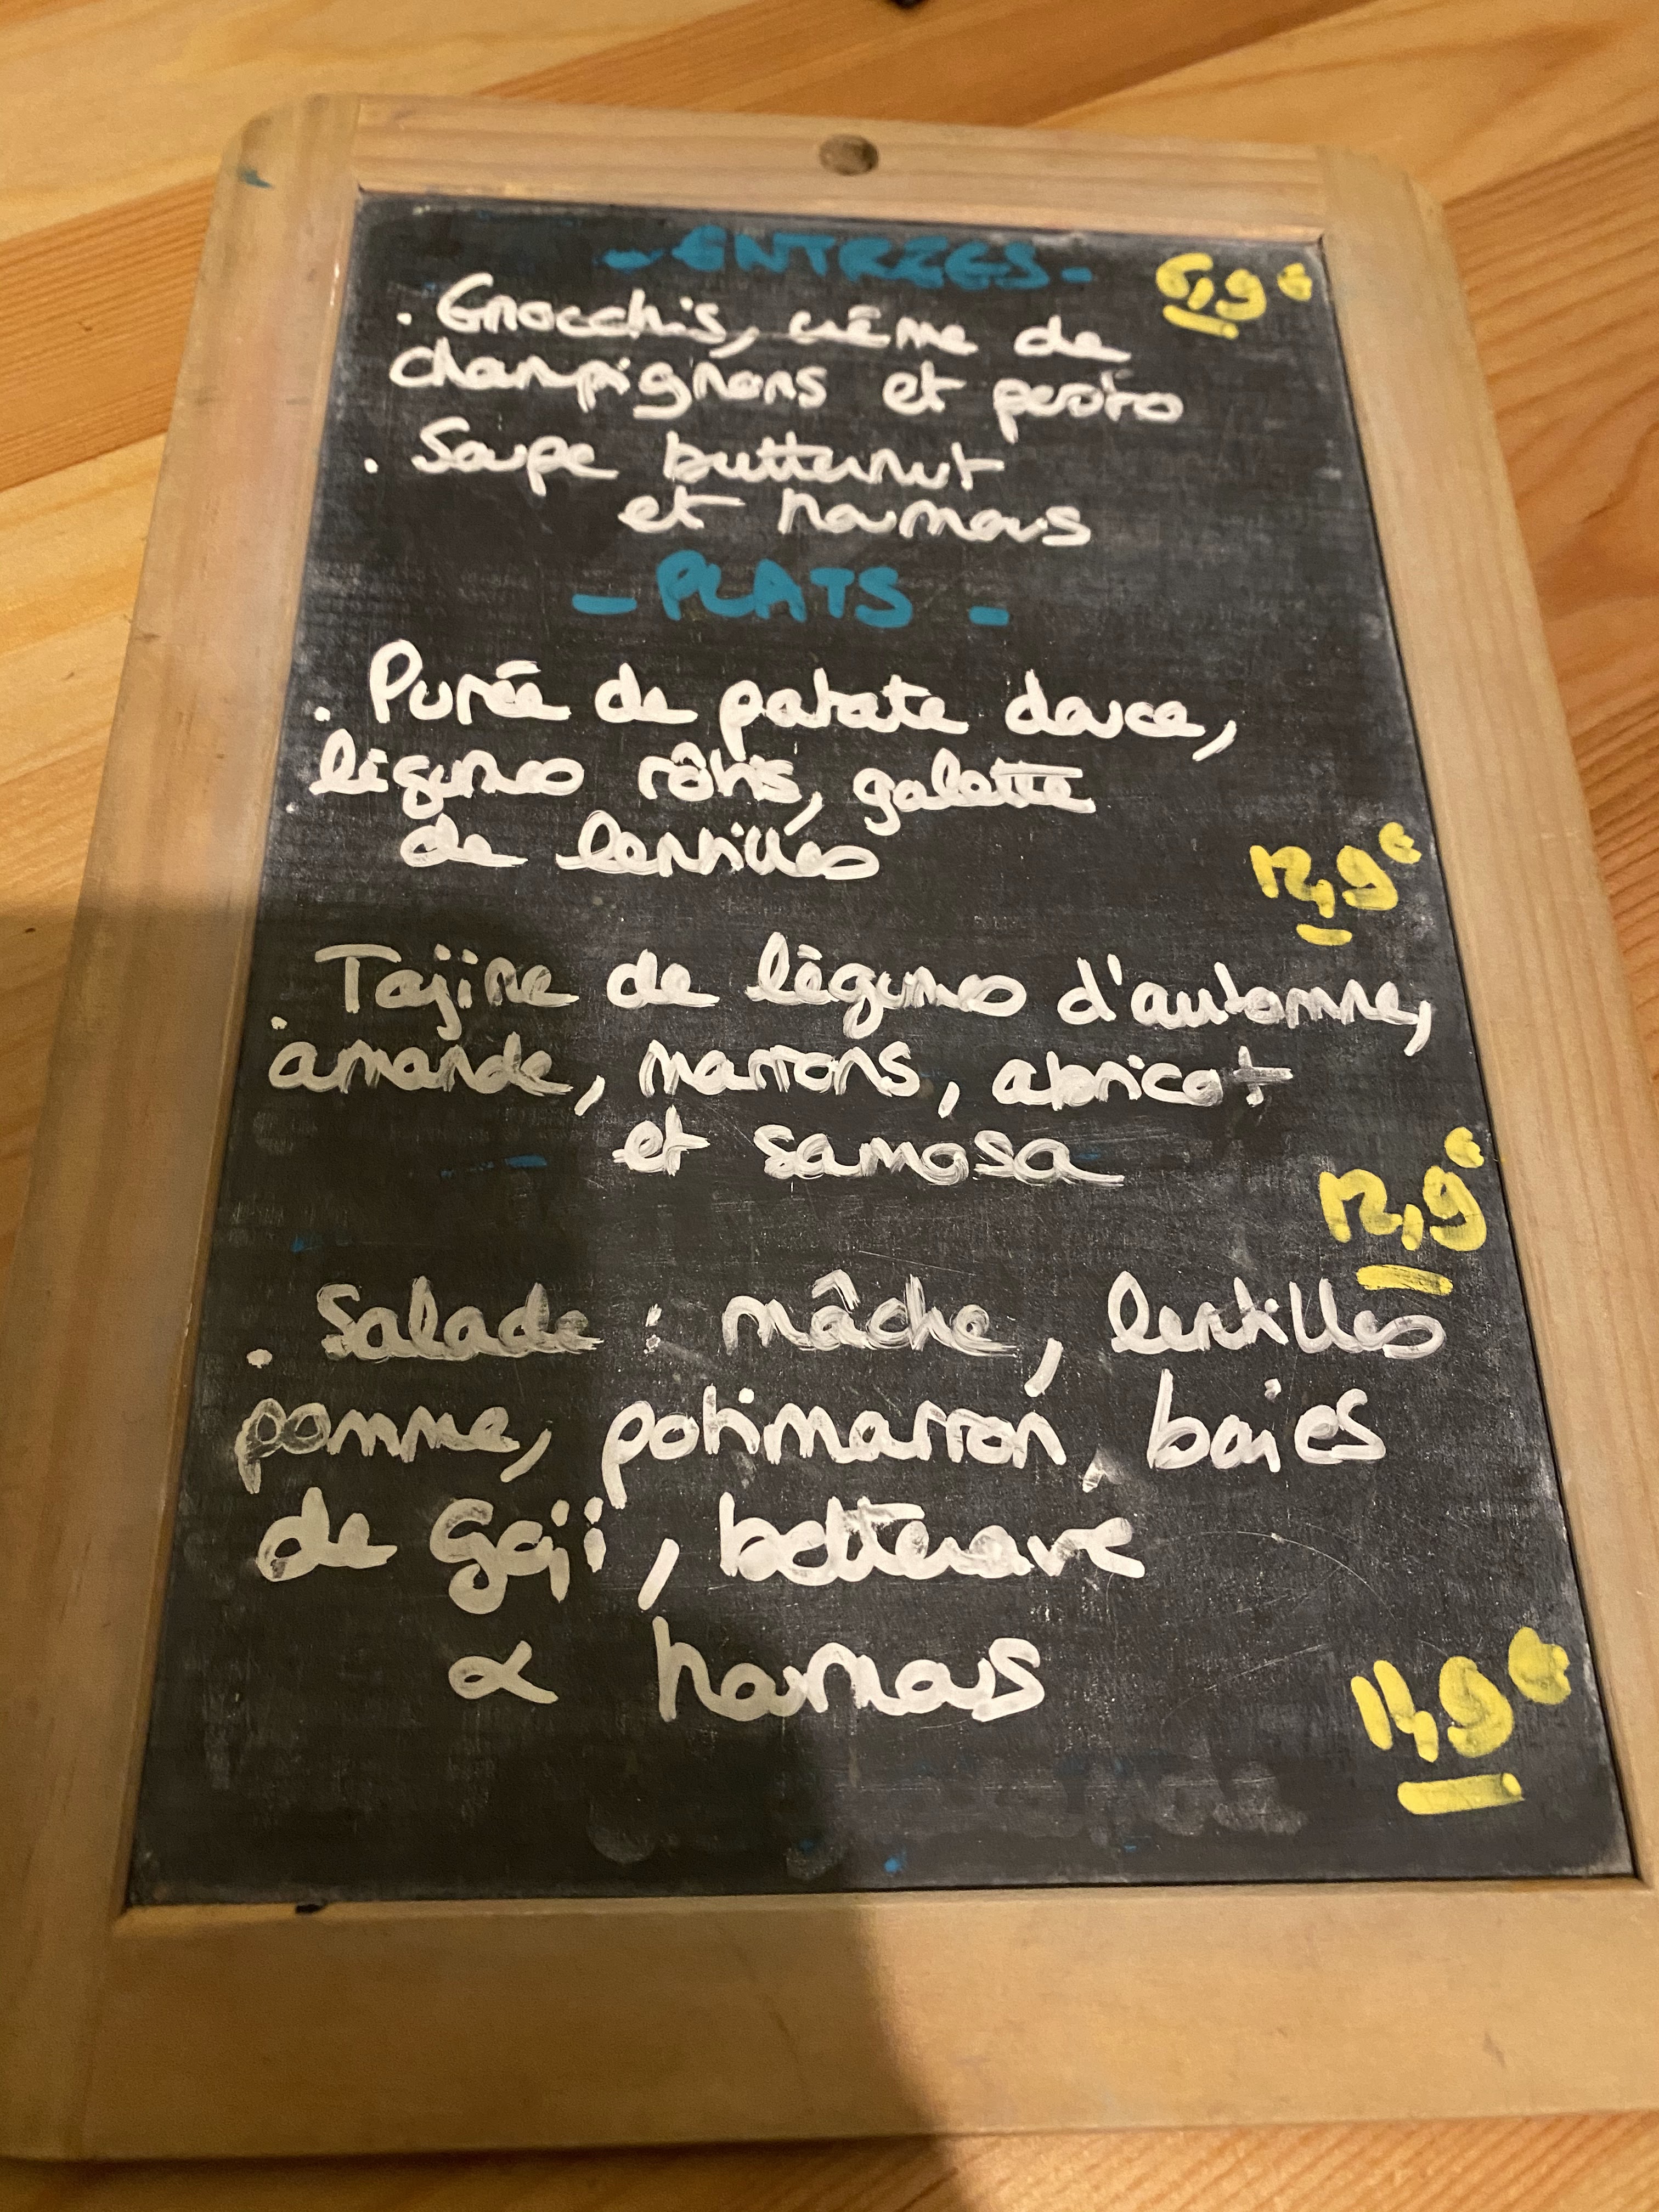 - ENTREES -
6,9€
. Gnocchis, crème de
champignons et pesto
. Soupe butternut
et houmous
- PLATS -
. Purée de patate douce,
légumes rôtis, galette
de lentilles
12,9€
. Tajine de légumes d'automne,
amande, marrons, abricot
et samosa
12,9€
. Salade : mâche, lentilles
pomme, potimarron, baies
de Goji, betterave
& houmous
11,9€